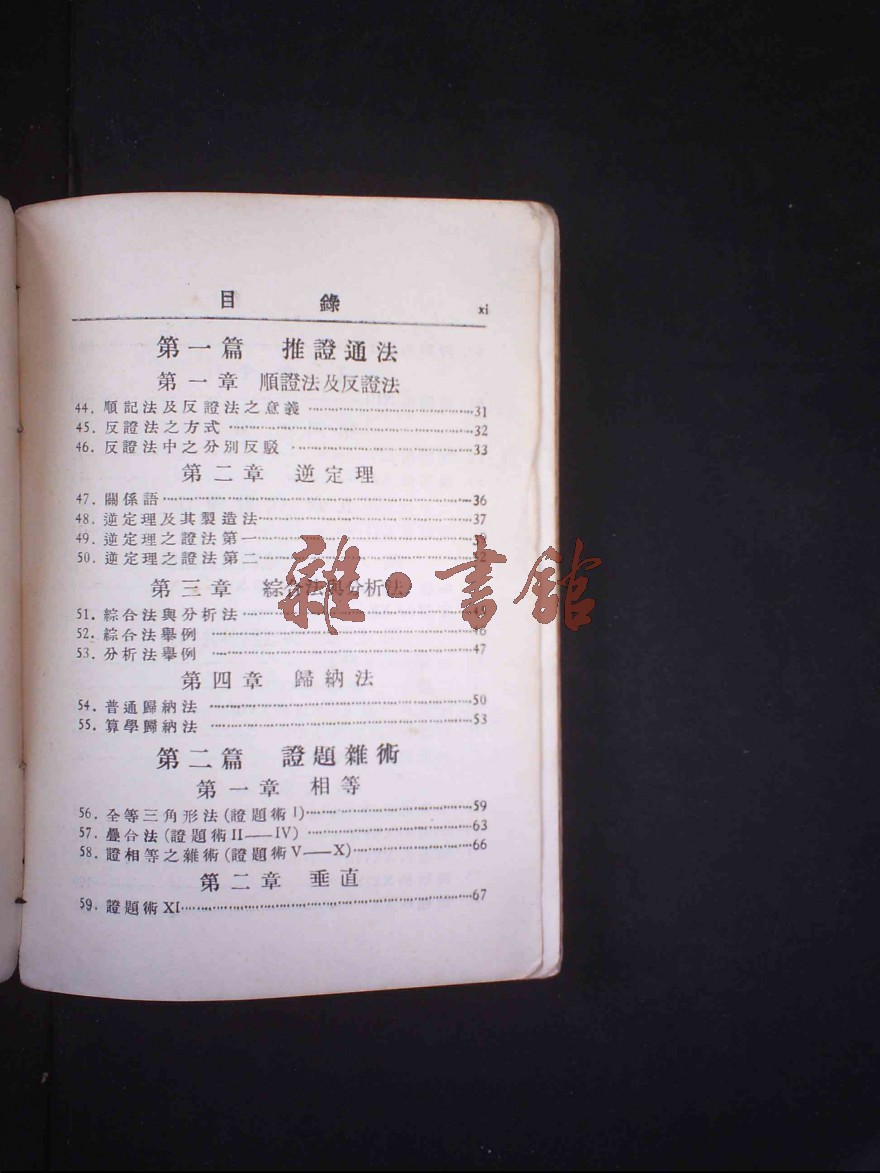 目錄 xi
第一篇 推證通法
第一章 順證法及反證法
44. 順記法及反證法之意義 ……31
45. 反證法之方式 ……32
46. 反證法中之分別反駁 ……33
第二章 逆定理
47. 關係語 ……36
48. 逆定理及其製造法 ……37
49. 逆定理之證法第一 ……
50. 逆定理之證法第二 ……
雜·書館
第三章 綜合法與分析法
51. 綜合法與分析法 ……
52. 綜合法舉例 ……46
53. 分析法舉例 ……47
第四章 歸納法
54. 普通歸納法 ……50
55. 算學歸納法 ……53
第二篇 證題雜術
第一章 相等
56. 全等三角形法(證題術I) ……59
57. 疊合法(證題術II——IV) ……63
58. 證相等之雜術(證題術V——X) ……66
第二章 垂直
59. 證題術XI ……67